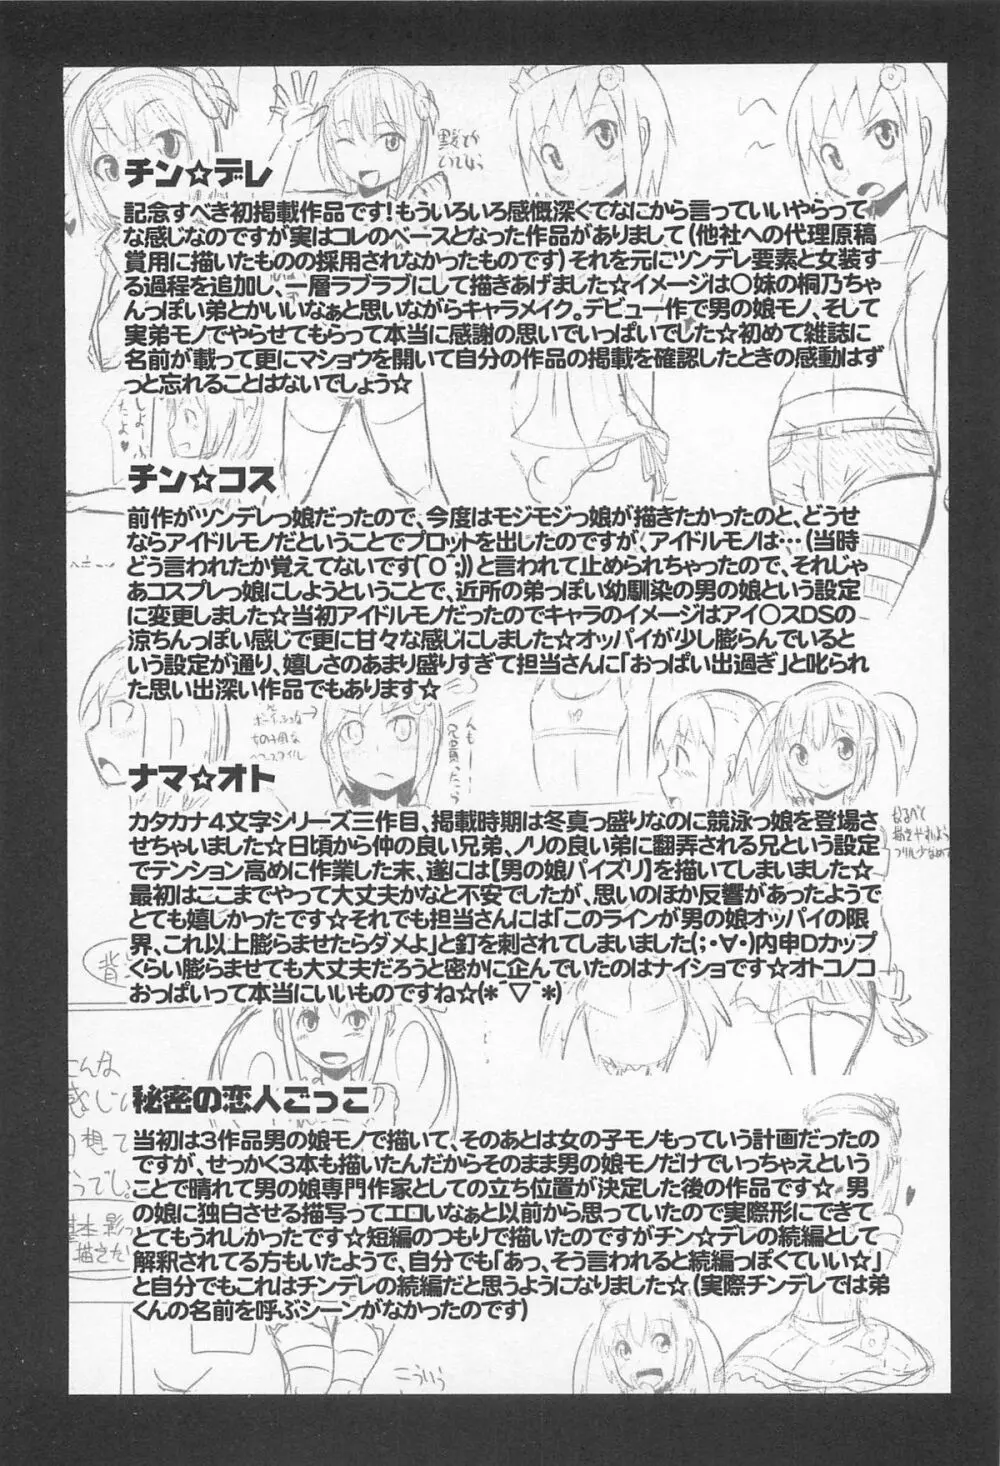 チン☆デレ
記念すべき初掲載作品です！もういろいろ感慨深くてなにから言っていいやらって
な感じなのですが実はコレのベースとなった作品がありまして(他社への代理原稿
賞用に描いたものの採用されなかったものです)それを元にツンデレ要素と女装す
る過程を追加し、一層ラブラブにして描きあげました☆イメージは〇妹の桐乃ちゃ
んっぽい弟とかいいなぁと思いながらキャラメイク。デビュー作で男の娘モノ、そして
実弟モノでやらせてもらって本当に感謝の思いでいっぱいでした☆初めて雑誌に
名前が載って更にマショウを開いて自分の作品の掲載を確認したときの感動はず
っと忘れることはないでしょう☆
チン☆コス
前作がツンデレっ娘だったので、今度はモジモジっ娘が描きたかったのと、どうせ
ならアイドルモノだということでプロットを出したのですが、アイドルモノは…(当時
どう言われたか覚えてないです(´O`;))と言われて止められちゃったので、それじゃ
あコスプレっ娘にしようということで、近所の弟っぽい幼馴染の男の娘という設定
に変更しました☆当初アイドルモノだったのでキャラのイメージはアイ〇スDSの
涼ちんっぽい感じで更に甘々な感じにしました☆オッパイが少し膨らんでいると
いう設定が通り、嬉しさのあまり盛りすぎて担当さんに「おっぱい出過ぎ」と叱られ
た思い出深い作品でもあります☆
ナマ☆オト
カタカナ4文字シリーズ三作目、掲載時期は冬真っ盛りなのに競泳っ娘を登場さ
せちゃいました☆日頃から仲の良い兄弟、ノリの良い弟に翻弄される兄という設定
でテンション高めに作業した末、遂には【男の娘パイズリ】を描いてしまいました☆
最初はここまでやって大丈夫かなと不安でしたが、思いのほか反響があったようで
とても嬉しかったです☆それでも担当さんには「このラインが男の娘オッパイの限
界、これ以上膨らませたらダメよ」と釘を刺されてしまいました(；・∀・)内申Dカップ
くらい膨らませても大丈夫だろうと密かに企んでいたのはナイショです☆オトコノコ
おっぱいって本当にいいものですね☆(*´▽`*)
秘密の恋人ごっこ
当初は3作品男の娘モノで描いて、そのあとは女の子モノもっていう計画だったの
ですが、せっかく3本も描いたんだからそのまま男の娘モノだけでいっちゃえという
ことで晴れて男の娘専門作家としての立ち位置が決定した後の作品です☆ 男
の娘に独白させる描写ってエロいなぁと以前から思っていたので実際形にできて
とてもうれしかったです☆短編のつもりで描いたのですがチン☆デレの続編として
解釈されてる方もいたようで、自分でも「あっ、そう言われると続編っぽくていい☆」
と自分でもこれはチンデレの続編だと思うようになりました☆(実際チンデレでは弟
くんの名前を呼ぶシーンがなかったのです)
こういう